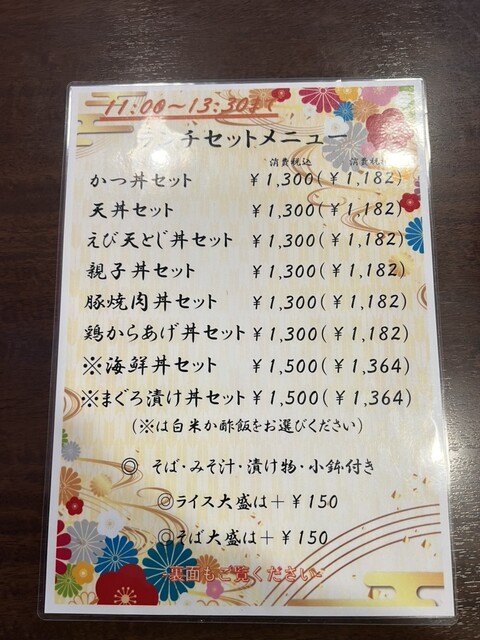 11:00～13:30まで
ランチセットメニュー
消費税込 消費税
かつ丼セット ￥1,300(￥1,182)
天丼セット ￥1,300(￥1,182)
えび天とじ丼セット ￥1,300(￥1,182)
親子丼セット ￥1,300(￥1,182)
豚焼肉丼セット ￥1,300(￥1,182)
鶏からあげ丼セット ￥1,300(￥1,182)
※海鮮丼セット ￥1,500(￥1,364)
※まぐろ漬け丼セット ￥1,500(￥1,364)
(※は白米か酢飯をお選びください)
◎ そば・みそ汁・漬け物・小鉢付き
◎ライス大盛は＋￥150
◎そば大盛は＋￥150
-裏面もご覧ください-